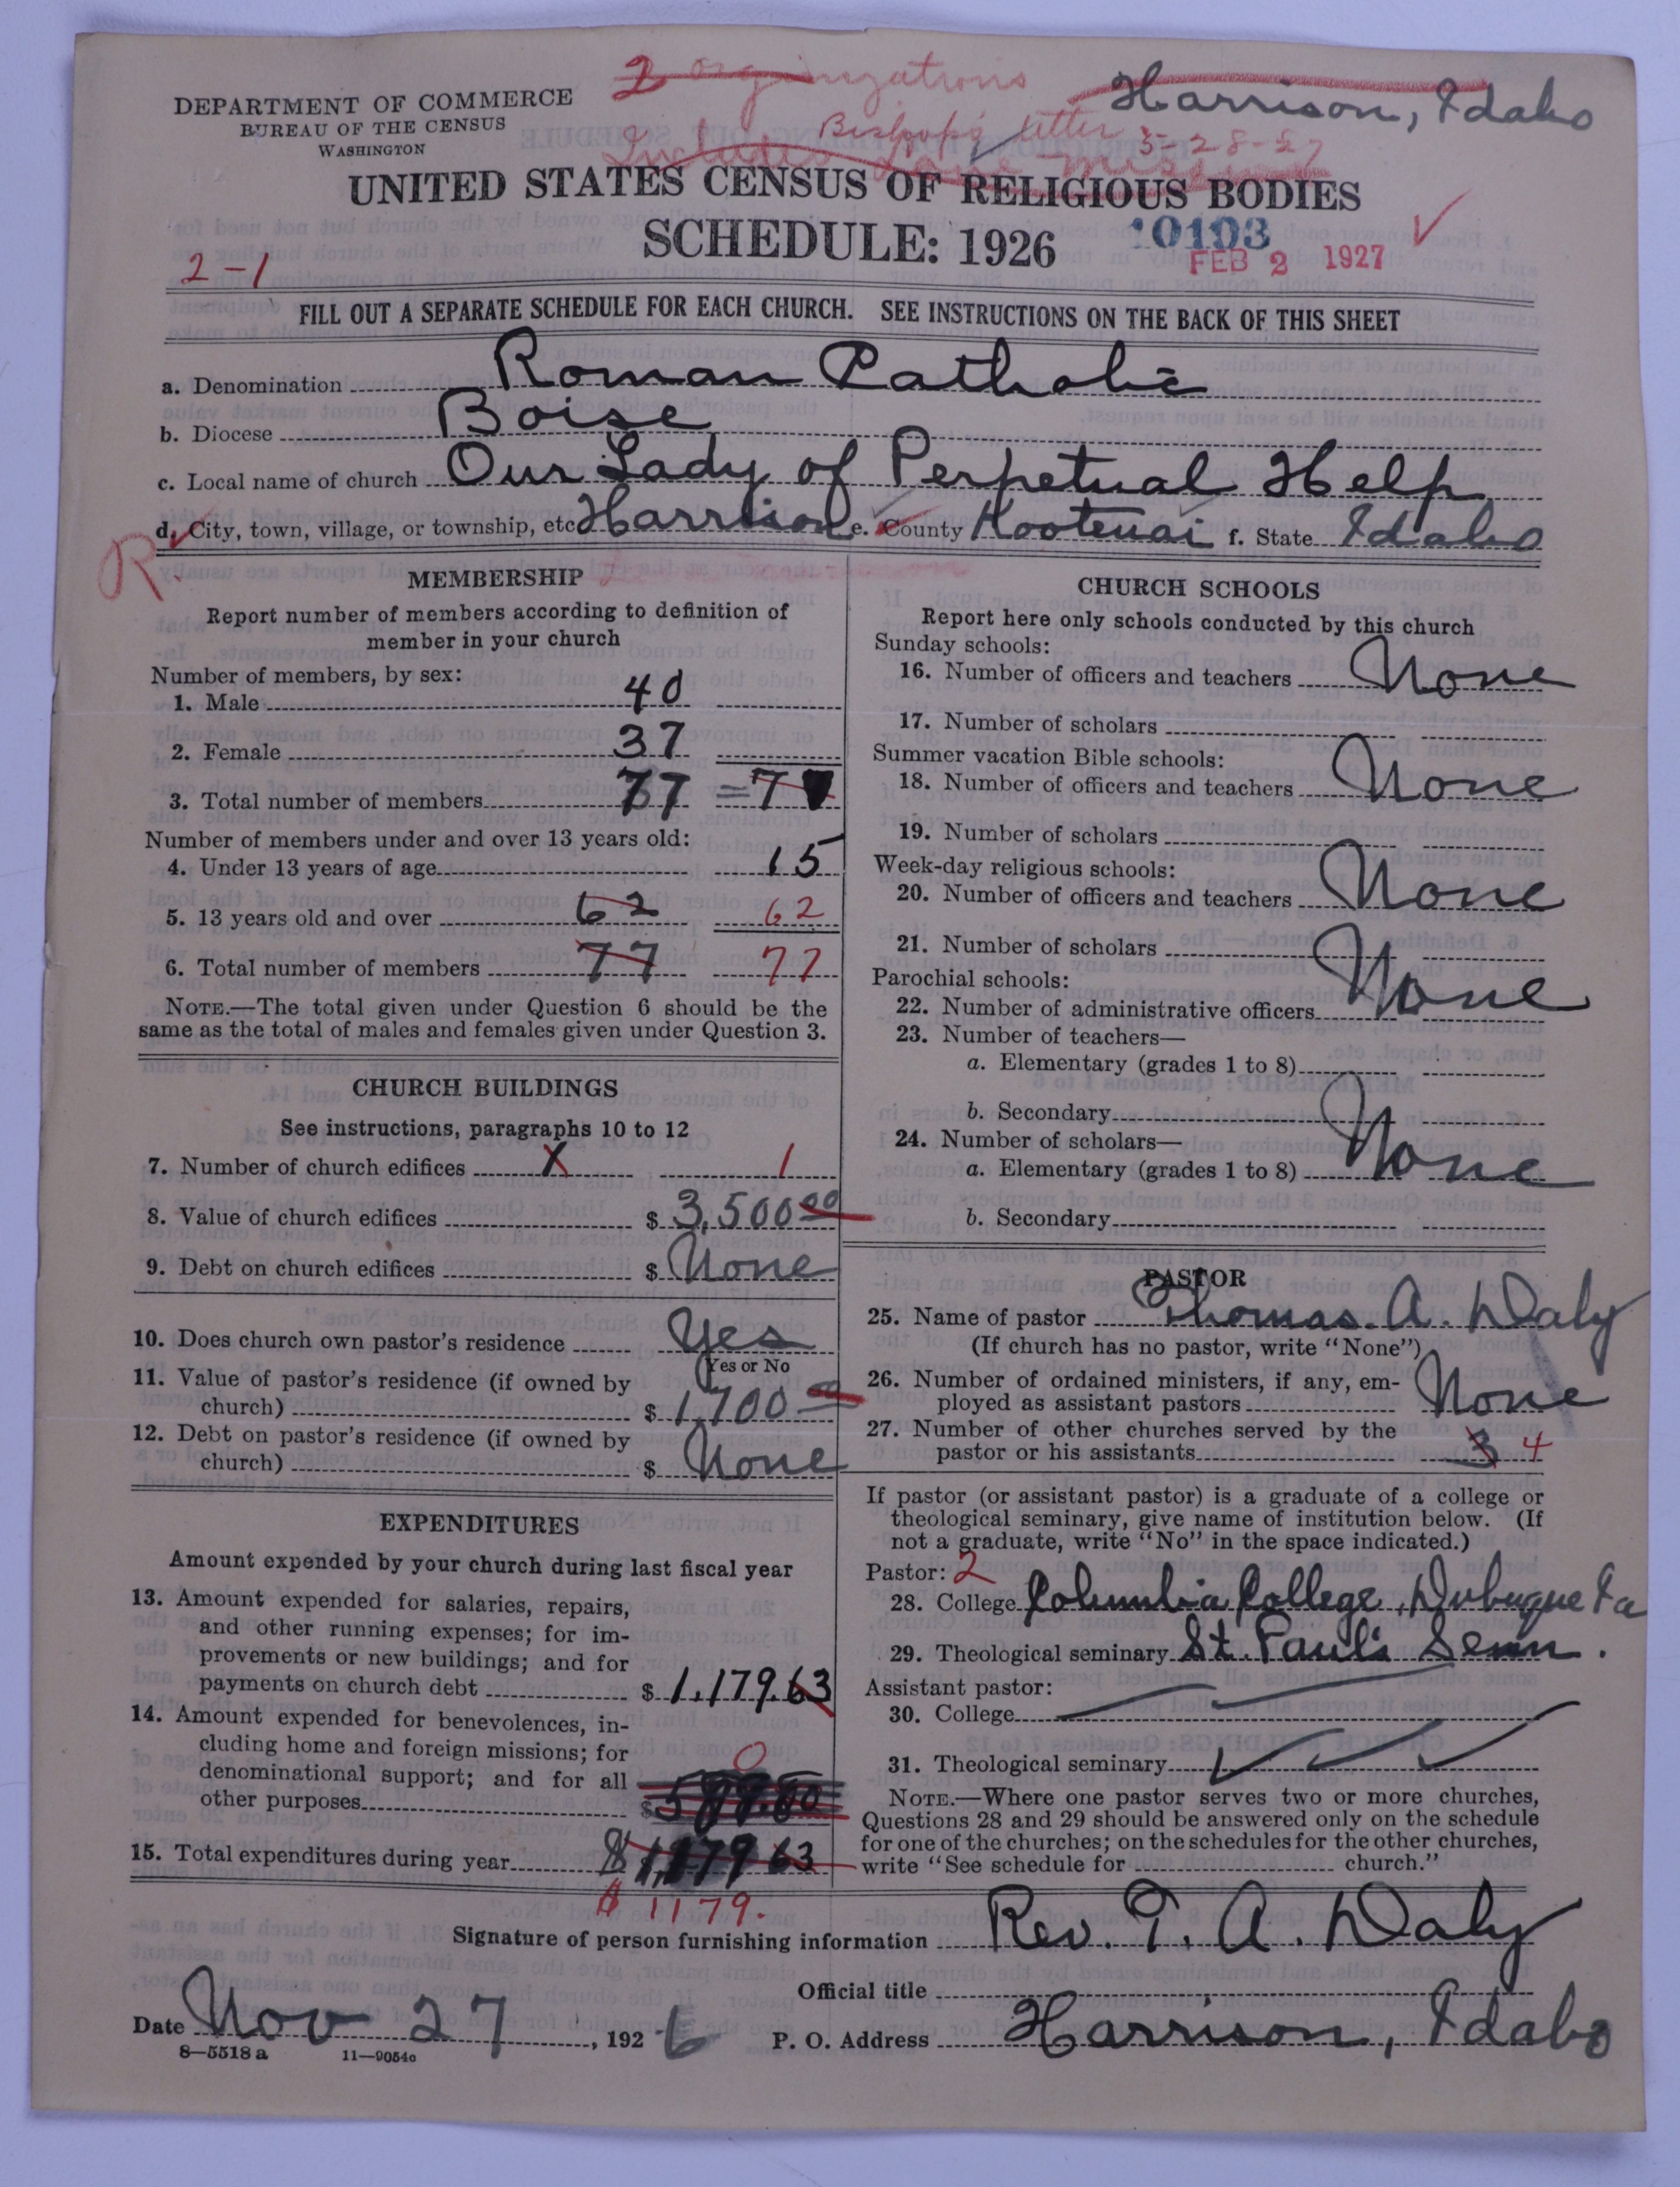 2 organizations
Harrison, Idaho
DEPARTMENT OF COMMERCE
BUREAU OF THE CENSUS
WASHINGTON
Bishop's letter 3-28-27
Includes Lane Mission
UNITED STATES CENSUS OF RELIGIOUS BODIES
SCHEDULE: 1926
10103
FEB 2 1927
2-1
FILL OUT A SEPARATE SCHEDULE FOR EACH CHURCH. SEE INSTRUCTIONS ON THE BACK OF THIS SHEET
a. Denomination Roman Catholic
b. Diocese Boise
c. Local name of church Our Lady of Perpetual Help
d. City, town, village, or township, etc Harrison e. County Kootenai f. State Idaho
R.
MEMBERSHIP
Report number of members according to definition of
member in your church
Number of members, by sex:
1. Male 40
2. Female 37
3. Total number of members 77 = 77
Number of members under and over 13 years old:
4. Under 13 years of age 15
5. 13 years old and over 62 62
6. Total number of members 77 77
NOTE.—The total given under Question 6 should be the
same as the total of males and females given under Question 3.
CHURCH BUILDINGS
See instructions, paragraphs 10 to 12
7. Number of church edifices X 1
8. Value of church edifices $ 3,500 00
9. Debt on church edifices $ None
10. Does church own pastor's residence Yes
Yes or No
11. Value of pastor's residence (if owned by
church) $ 1,700 00
12. Debt on pastor's residence (if owned by
church) $ None
EXPENDITURES
Amount expended by your church during last fiscal year
13. Amount expended for salaries, repairs,
and other running expenses; for im-
provements or new buildings; and for
payments on church debt $ 1,179.63
14. Amount expended for benevolences, in-
cluding home and foreign missions; for
denominational support; and for all
other purposes $ 0
15. Total expenditures during year $ 1,179 63
$ 1179.
CHURCH SCHOOLS
Report here only schools conducted by this church
Sunday schools:
16. Number of officers and teachers None
17. Number of scholars
Summer vacation Bible schools:
18. Number of officers and teachers None
19. Number of scholars
Week-day religious schools:
20. Number of officers and teachers None
21. Number of scholars
Parochial schools:
22. Number of administrative officers None
23. Number of teachers—
a. Elementary (grades 1 to 8)
b. Secondary
24. Number of scholars—
a. Elementary (grades 1 to 8) None
b. Secondary
PASTOR
25. Name of pastor Thomas. A. Daly
(If church has no pastor, write "None")
26. Number of ordained ministers, if any, em-
ployed as assistant pastors None
27. Number of other churches served by the
pastor or his assistants 3 4
If pastor (or assistant pastor) is a graduate of a college or
theological seminary, give name of institution below. (If
not a graduate, write "No" in the space indicated.)
Pastor: 2
28. College Columbia College, Dubuque Ia
29. Theological seminary St. Paul's Semn.
Assistant pastor:
30. College
31. Theological seminary
NOTE.—Where one pastor serves two or more churches,
Questions 28 and 29 should be answered only on the schedule
for one of the churches; on the schedules for the other churches,
write "See schedule for church."
Signature of person furnishing information Rev. T. A. Daly
Official title
Date Nov 27, 1926 P. O. Address Harrison, Idaho
8—5518 a 11—9054a